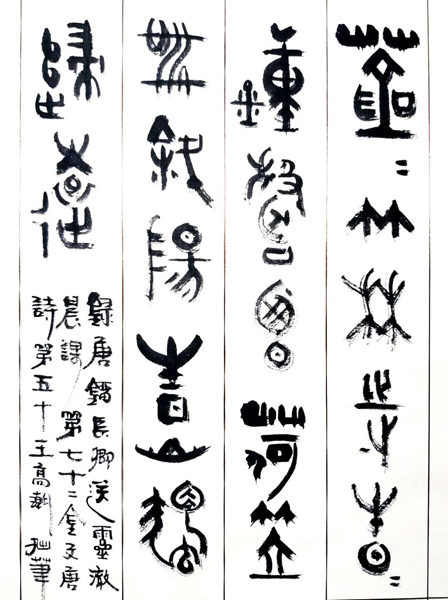 蒼〻竹林寺杳〻
鐘聲晚荷笠
帶斜陽青山獨
歸遠
錄唐鎦長卿送靈澈
晨課 第七十二金文唐
詩第五十王高 拙筆